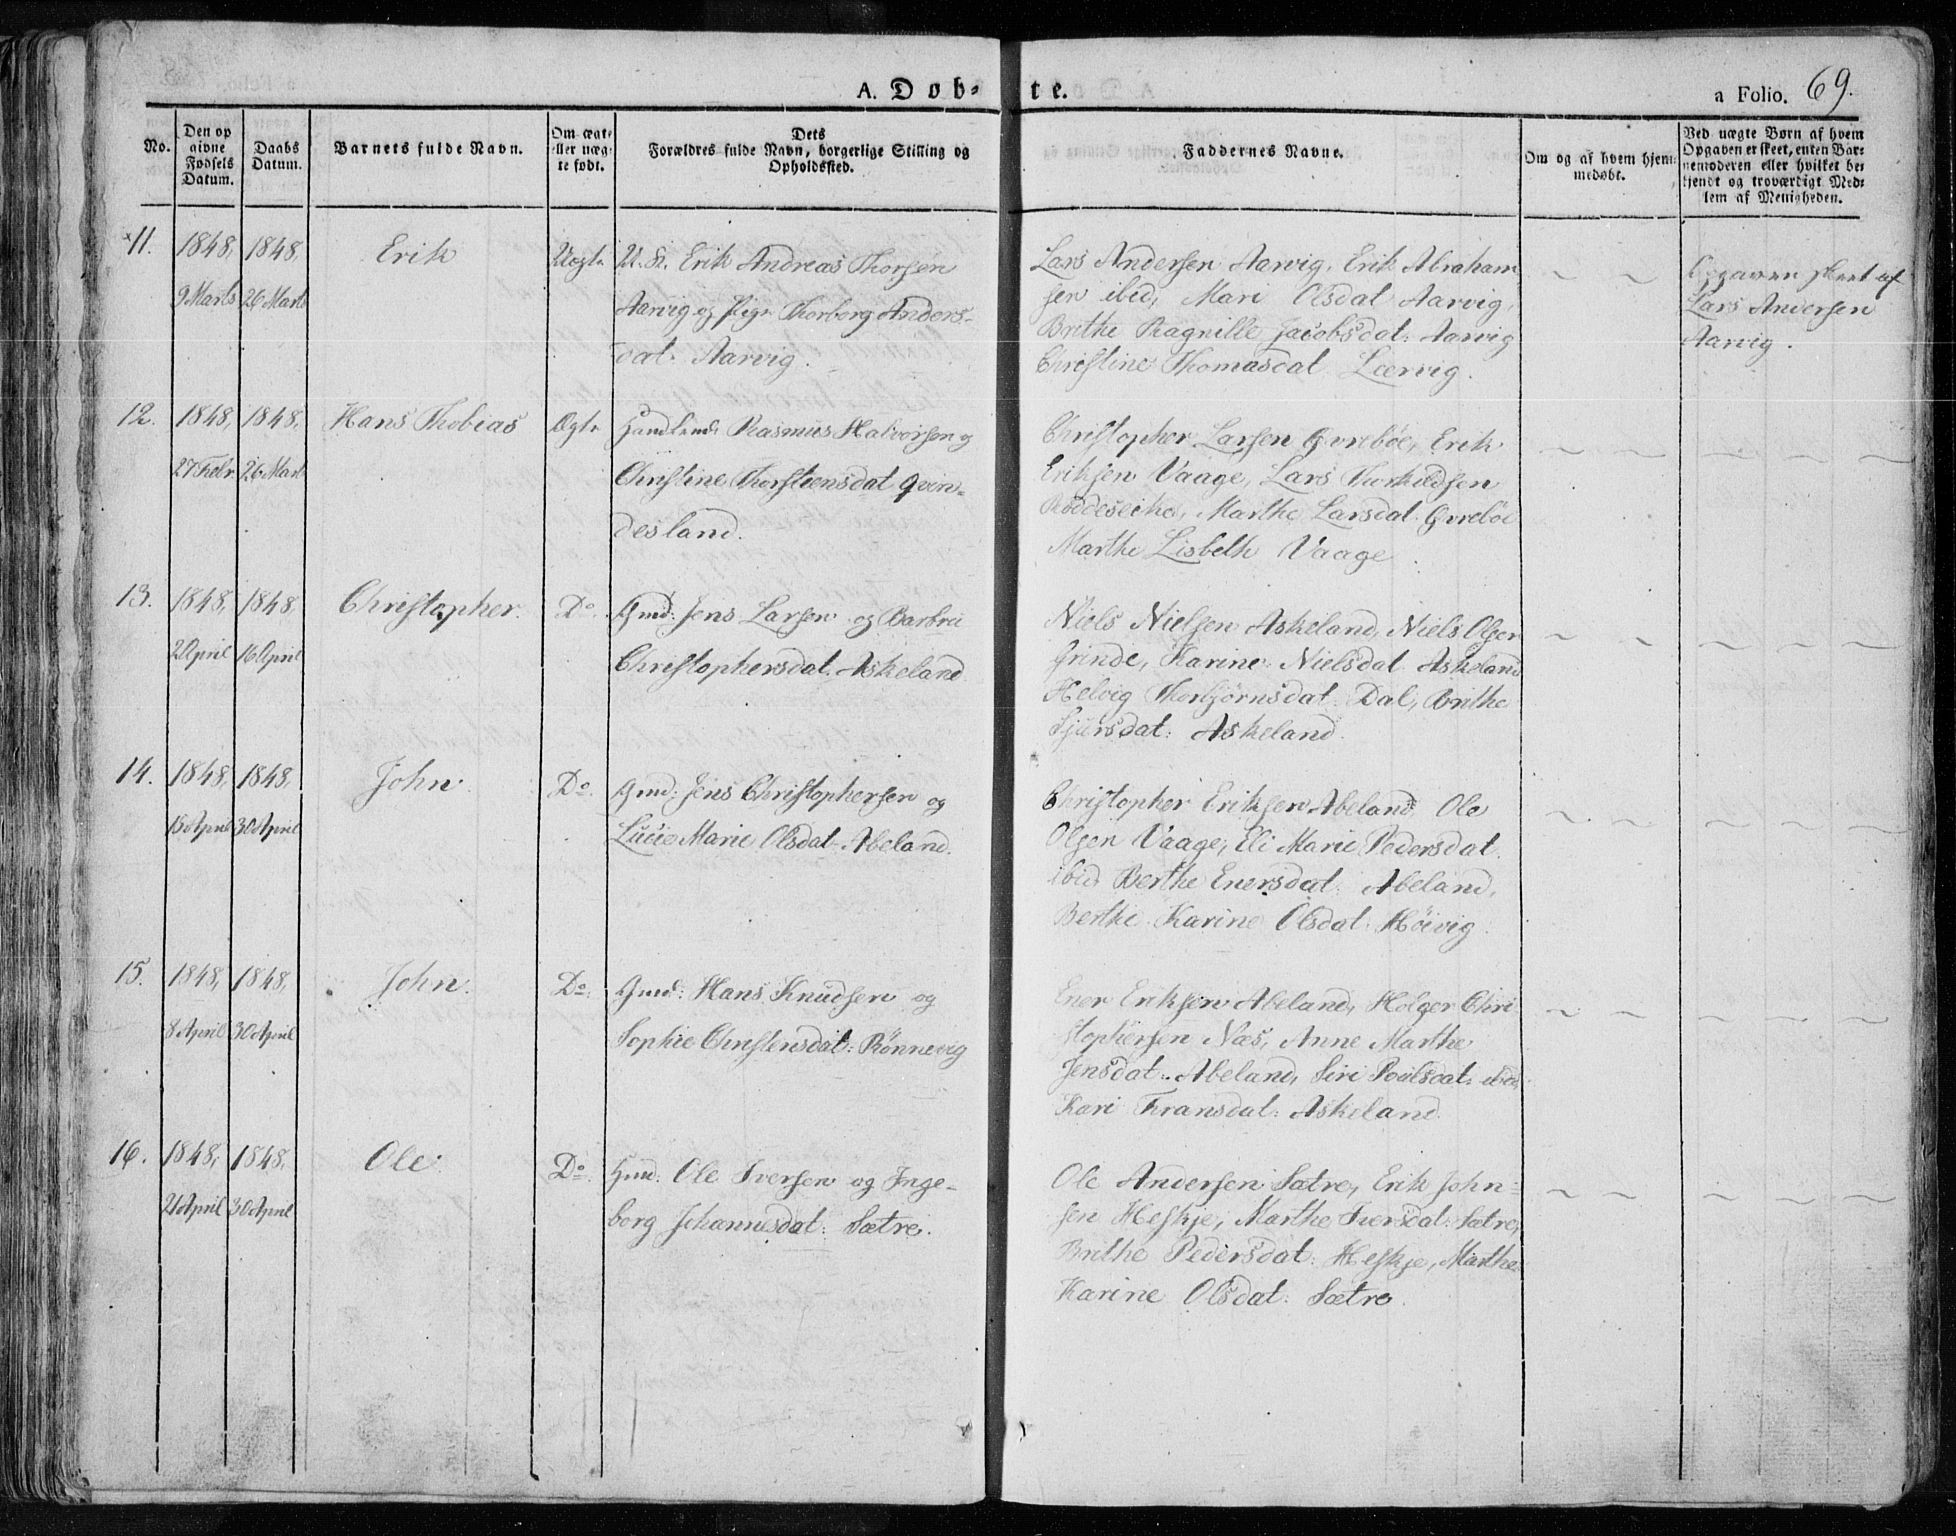 A. Døb-
te.
a Folio. 69.
No.
Den op
givne
Fødsels
Datum.
Daabs
Datum.
Barnets fulde Navn.
Om ægt-
eller uæg-
te født.
Dets
Forældres fulde Navn, borgerlige Stilling og
Opholdssted.
Faddernes Navne.
Om og af hvem hjem-
medøbt.
Ved uægte Børn af hvem
Opgaven er skeet, enten Bar-
nemoderen eller hvilket be-
kjendt og troværdigt Med-
lem af Menigheden.
11.
1848,
9 Marts
1848,
26 Marts
Erik
Uægte
U. K. Erik Andreas Thorsen
Aarvig og Pige Thorborg Anders-
dat. Aarvig.
Lars Andersen Aarvig, Erik Abraham-
sen ibid, Mari Olsdat Aarvig,
Brithe Ragnille Jacobsdat: Aarvig
Christine Thomasdat Lærvig.
Opgaven skeet af
Lars Andersen
Aarvig.
12.
1848,
27 Febr
1848,
26 Mart
Hans Thobias
Ægte
Handlende Rasmus Halvorsen og
Christine Thorsteensdat Qvin-
desland.
Christopher Larsen Gvrebøe, Erik
Eriksen Vaage, Lars Thorkildsen
Marthe Larsdat Gvrebøe
Marthe Lisbeth Vaage
13.
1848,
2 April
1848,
16 April
Christopher
Do.
Gmd: Jens Larsen og Barbrei
Christophersdat. Askeland
Niels Nielsen Askeland, Niels Olsen
Grinde, Karine Nielsdat Askeland
Helvig Thorbjörnsdat: Dal, Brithe
Sjursdat: Askeland.
14.
1848,
15 April
1848,
30 April
John
Do.
Gmd: Jens Christophersen og
Lucie Marie Olsdat Abeland.
Christopher Eriksen Abeland, Ole
Olsen Vaage, Eli Marie Pedersdat
ibid. Berthe Enersdat: Abeland,
Berthe Karine Olsdat: Höivig.
15.
1848,
8 April
1848,
30 April
John
Do.
Gmd: Hans Knudsen og
Sophie Christensdat: Rönnevig
Ener Eriksen Abeland, Holger Chri-
stophersen Næs, Anne Marthe
Jensdat: Abeland, Siri Poulsdat: ibid
Kari Fransdat: Askeland.
16.
1848,
21 April
1848,
30 April
Ole
Do.
Hmd: Ole Iversen og Inge-
borg Johannesdat: Sætre.
Ole Andersen Sætre, Erik John-
sen Heskje, Marthe Iversdat: Sætre,
Brithe Pedersdat: Heskje, Marthe
Karine Olsdat: Sætre.